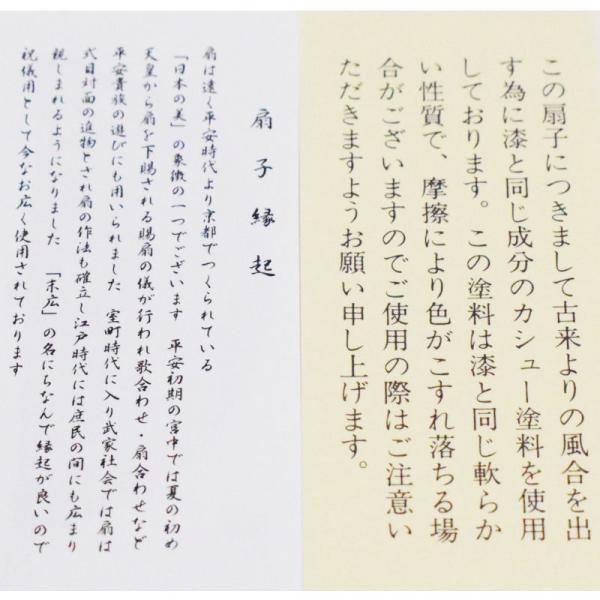 この扇子につきまして古来よりの風合を出
す為に漆と同じ成分のカシュー塗料を使用
しております。この塗料は漆と同じ軟らか
い性質で、摩擦により色がこすれ落ちる場
合がございますのでご使用の際はご注意い
ただきますようお願い申し上げます。
扇子縁起
扇は遠く平安時代より京都でつくられている
「日本の美」の象徴の一つでございます 平安初期の宮中では夏の初め
天皇から扇を下賜される賜扇の儀が行われ歌合わせ・扇合わせなど
平安貴族の遊びにも用いられました 室町時代に入り武家社会では扇は
式日対面の進物とされ扇の作法も確立し江戸時代には庶民の間にも広まり
親しまれるようになりました 「末広」の名にちなんで縁起が良いので
祝儀用として今なお広く使用されております